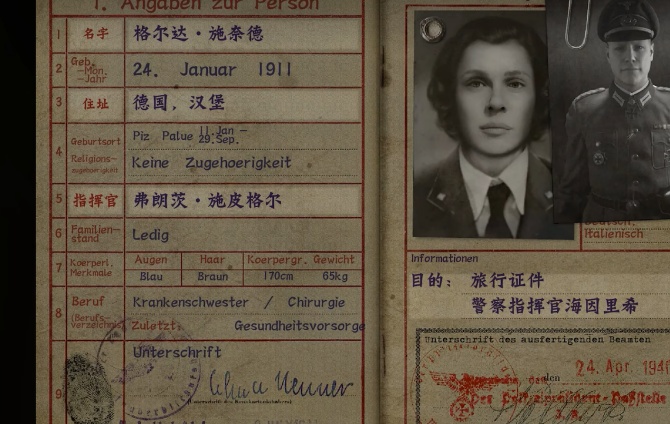 1. Angaben zur Person
1 名字 格尔达·施奈德
2 Geb.
—Mon.
—Jahr
24. Januar 1911
3 住址 德国，汉堡
4 Geburtsort
Piz Palue 11. Jan –
29. Sep.
Religions-
zugehoerigkeit
Keine Zugehoerigkeit
5 指挥官 弗朗茨·施皮格尔
6 Familien-
stand
Ledig
7 Koerperl.
Merkmale
Augen Haar Koerpergr. Gewicht
Blau Braun 170cm 65kg
8 Beruf
(Berufs-
verzeichnis)
Krankenschwester / Chirurgie
Zuletzt: Gesundheitsvorsorge
9
Unterschrift
Italienisch
Informationen
目的： 旅行证件
警察指挥官海因里希
Unterschrift des ausfertigenden Beamten
24. Apr. 194
den
Der Polizeipräsident-Paßstelle